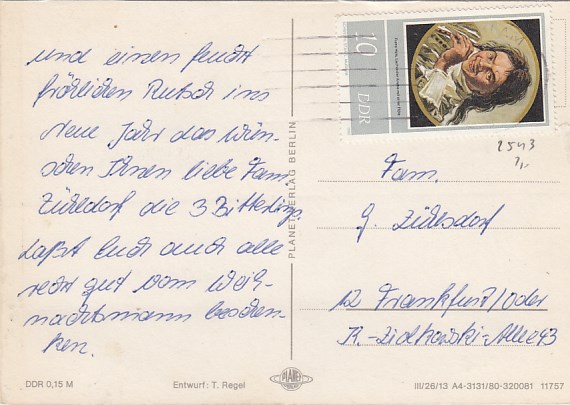 und einen feucht
fröhlichen Rutsch ins
neue Jahr das wün-
schen Ihnen liebe Fam.
Zühlsdorf die 3 Bitterlings.
Laßt Euch auch alle
recht gut vom Weih-
nachtsmann beschen-
ken.
DDR 0,15 M
Entwurf: T. Regel
PLANET-VERLAG BERLIN
PLANET
10
DDR
2543
7,-
Fam.
G. Zühlsdorf
12 Frankfurt/Oder
K.-Ziolkowski-Allee 43
III/26/13 A4-3131/80-320081 11757